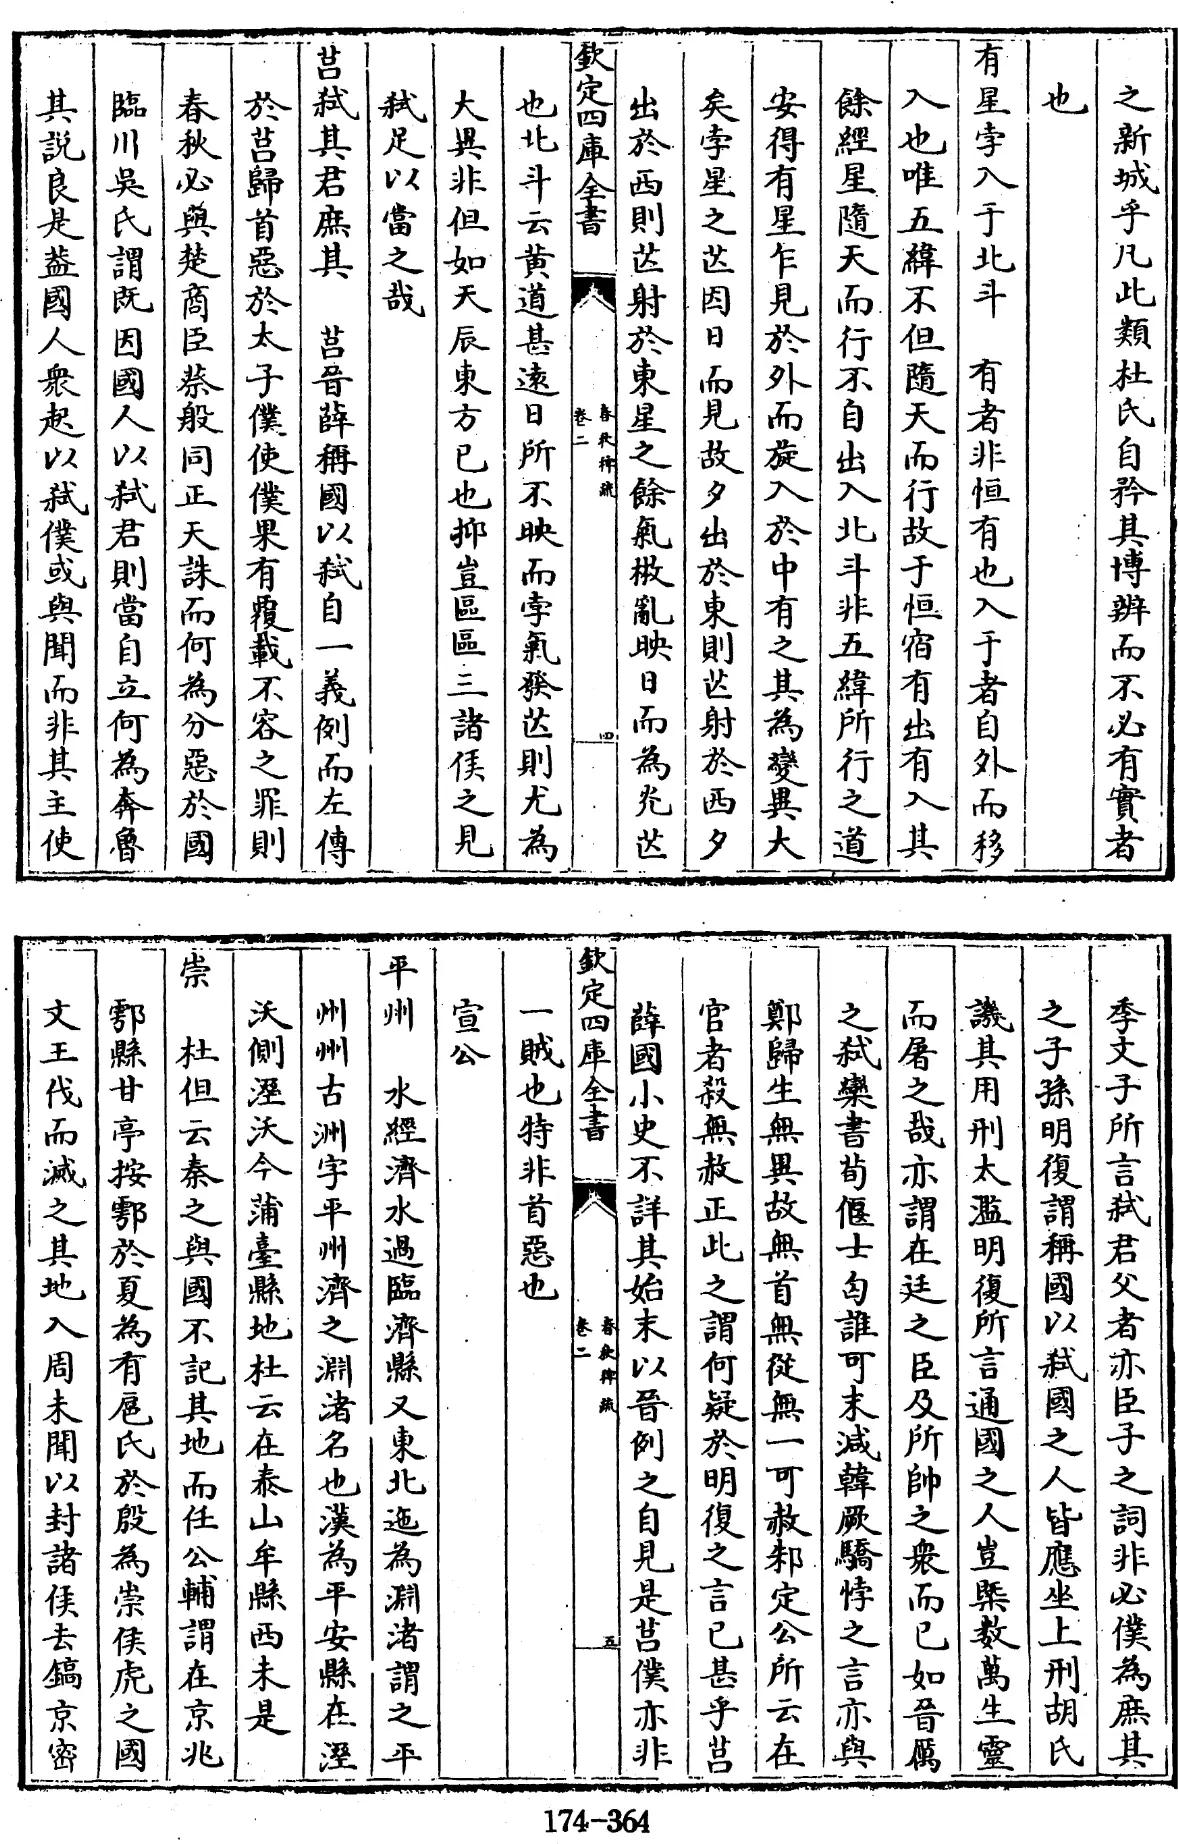 之新城乎凡此類杜氏自矜其博辨而不必有實者
也
有星孛入于北斗　有者非恒有也入于者自外而移
入也唯五緯不但隨天而行故于恒宿有出有入其
餘經星隨天而行不自出入北斗非五緯所行之道
安得有星乍見於外而旋入於中有之其為變異大
矣孛星之芒因日而見故夕出於東則芒射於西夕
出於西則芒射於東星之餘氣棷亂映日而為光芒
欽定四庫全書
春秋稗疏
卷二
四
也北斗云黄道甚遠日所不映而孛氣發芒則尤為
大異非但如天辰東方已也抑豈區區三諸侯之見
弑足以當之哉
莒弑其君庶其　莒晉薛稱國以弑自一義例而左傳
於莒歸首惡於太子僕使僕果有覆載不容之罪則
春秋必與楚商臣蔡般同正天誅而何為分惡於國
臨川吳氏謂既因國人以弑君則當自立何為奔魯
其説良是葢國人衆起以弑僕或與聞而非其主使
季文子所言弑君父者亦臣子之詞非必僕為庶其
之子孫明復謂稱國以弑國之人皆應坐上刑胡氏
譏其用刑太濫明復所言通國之人豈槩數萬生靈
而屠之哉亦謂在廷之臣及所帥之衆而已如晉厲
之弑欒書荀偃士匄誰可末減韓厥驕悖之言亦與
鄭歸生無異故無首無從無一可赦邾定公所云在
官者殺無赦正此之謂何疑於明復之言已甚乎莒
薛國小史不詳其始末以晉例之自見是莒僕亦非
欽定四庫全書
春秋稗疏
卷二
五
一賊也特非首惡也
宣公
平州　水經濟水過臨濟縣又東北迤為淵渚謂之平
州州古洲字平州濟之淵渚名也漢為平安縣在溼
沃側溼沃今蒲臺縣地杜云在泰山牟縣西未是
崇　杜但云秦之與國不記其地而任公輔謂在京兆
鄠縣甘亭按鄠於夏為有扈氏於殷為崇侯虎之國
文王伐而滅之其地入周未聞以封諸侯去鎬京密
174-364